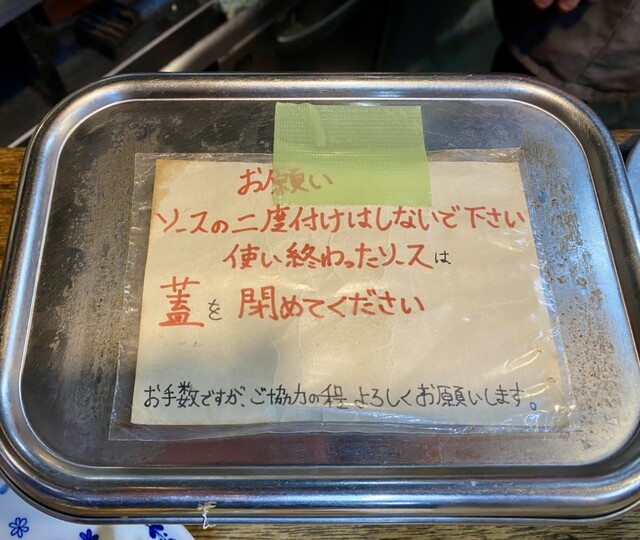 お願い
ソースの二度付けはしないで下さい
使い終わったソースは
蓋を閉めてください
お手数ですが、ご協力の程よろしくお願いします。